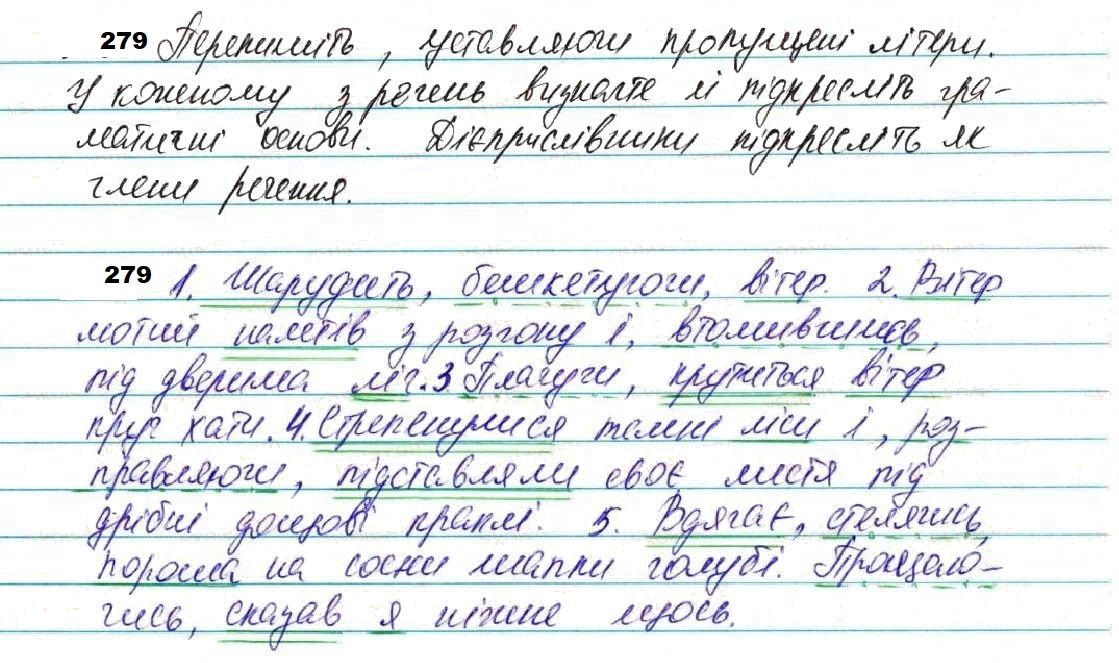 279 Перепишіть, уставляючи пропущені літери.
У кожному з речень визначте й підкресліть гра-
матичні основи. Дієприслівники підкресліть як
члени речення.
279 1. Шарудить, бешкетуючи, вітер. 2. Вітер
мотий налетів з розгону і, втомившись,
під дверима ліг. 3 Плачучи, крутиться вітер
круг хати. 4. Стрепенулися темні ліси і, роз-
правляючи, підставляли своє листя під
дрібні дощові краплі. 5. Вдягає, стелячись,
пороша на сосни шапки голубі. Прощаю-
чись, сказав я ніжне щось.